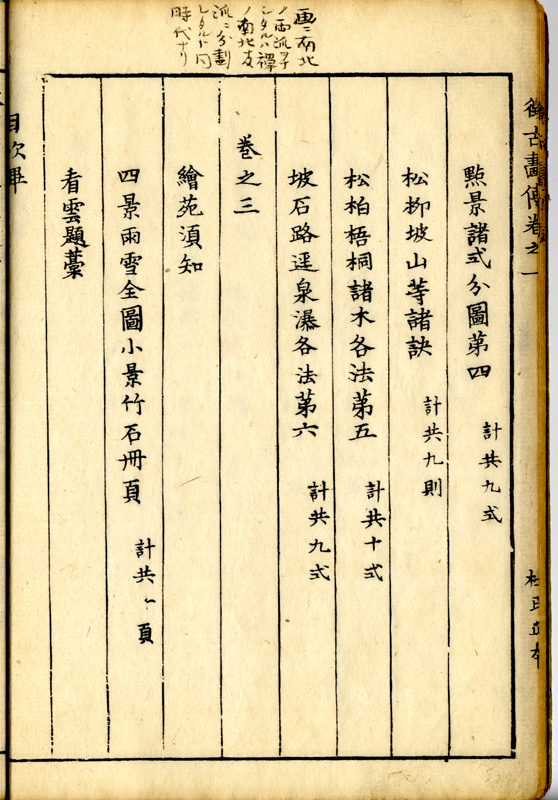 画ニ南北
ノ両流ヲ
シタルハ禅
ノ南北支
派ニ分劃
シタルト同
時代ナリ
點景諸式分圖第四 計共九式
松柳坡山等諸訣 計共九則
松柏梧桐諸木各法第五 計共十式
坡石路逕泉瀑各法第六 計共九式
巻之三
繪苑須知
四景雨雪全圖小景竹石冊頁 計共 頁
看雲題藁
目次畢
古畫傳卷之一